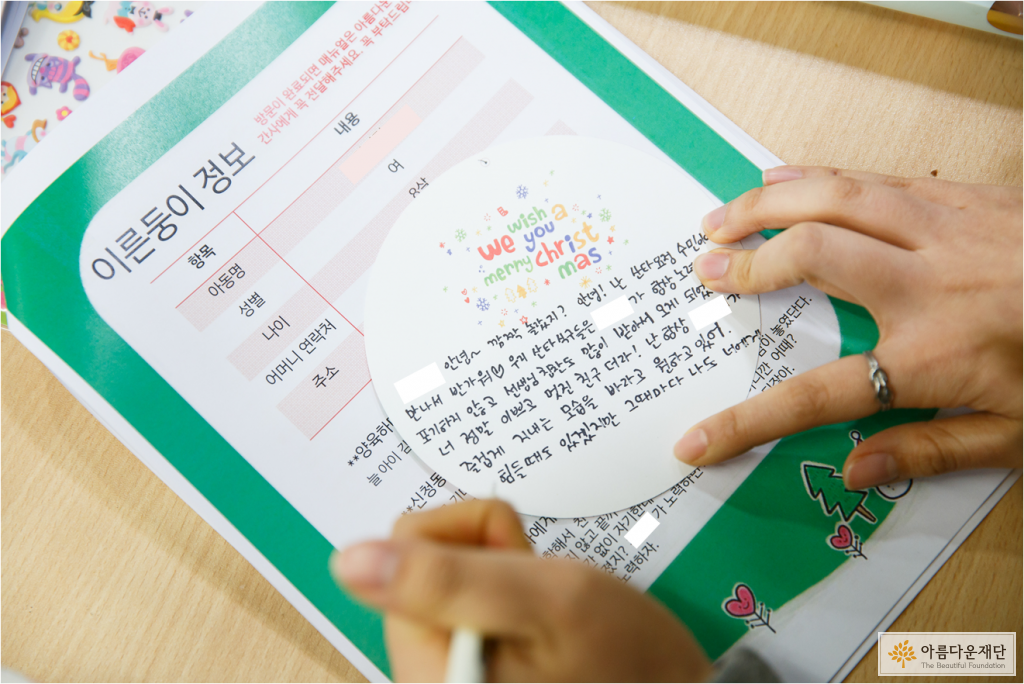 이른둥이 정보
방문이 완료되면 매뉴얼은 아름다운
간사에게 꼭 전달해주세요. 꼭 부탁드립
항목
내용
아동명
성별
여
나이
어머니 연락처
주소
**양육하
늘 아이 김
**신청동
we wish
you a
merry christ
mas
안녕~ 깜짝 놀랐지? 안녕! 난 산타요정 수민
만나서 반가워 우리 산타식구들은 가 항상
포기하지 않고 선생님 칭찬도 많이 받아서 오게 되었
너 정말 이쁘고 멋진 친구 더라! 난 항상 가
즐겁게 지내는 모습을 바라고 원하고 있어.
힘들때도 있겠지만 그때마다 나도 너에게
놓였단다.
어때?
않고 끝까
없이 자기한테
가 노력하면
노력하자.
아름다운재단
The Beautiful Foundation